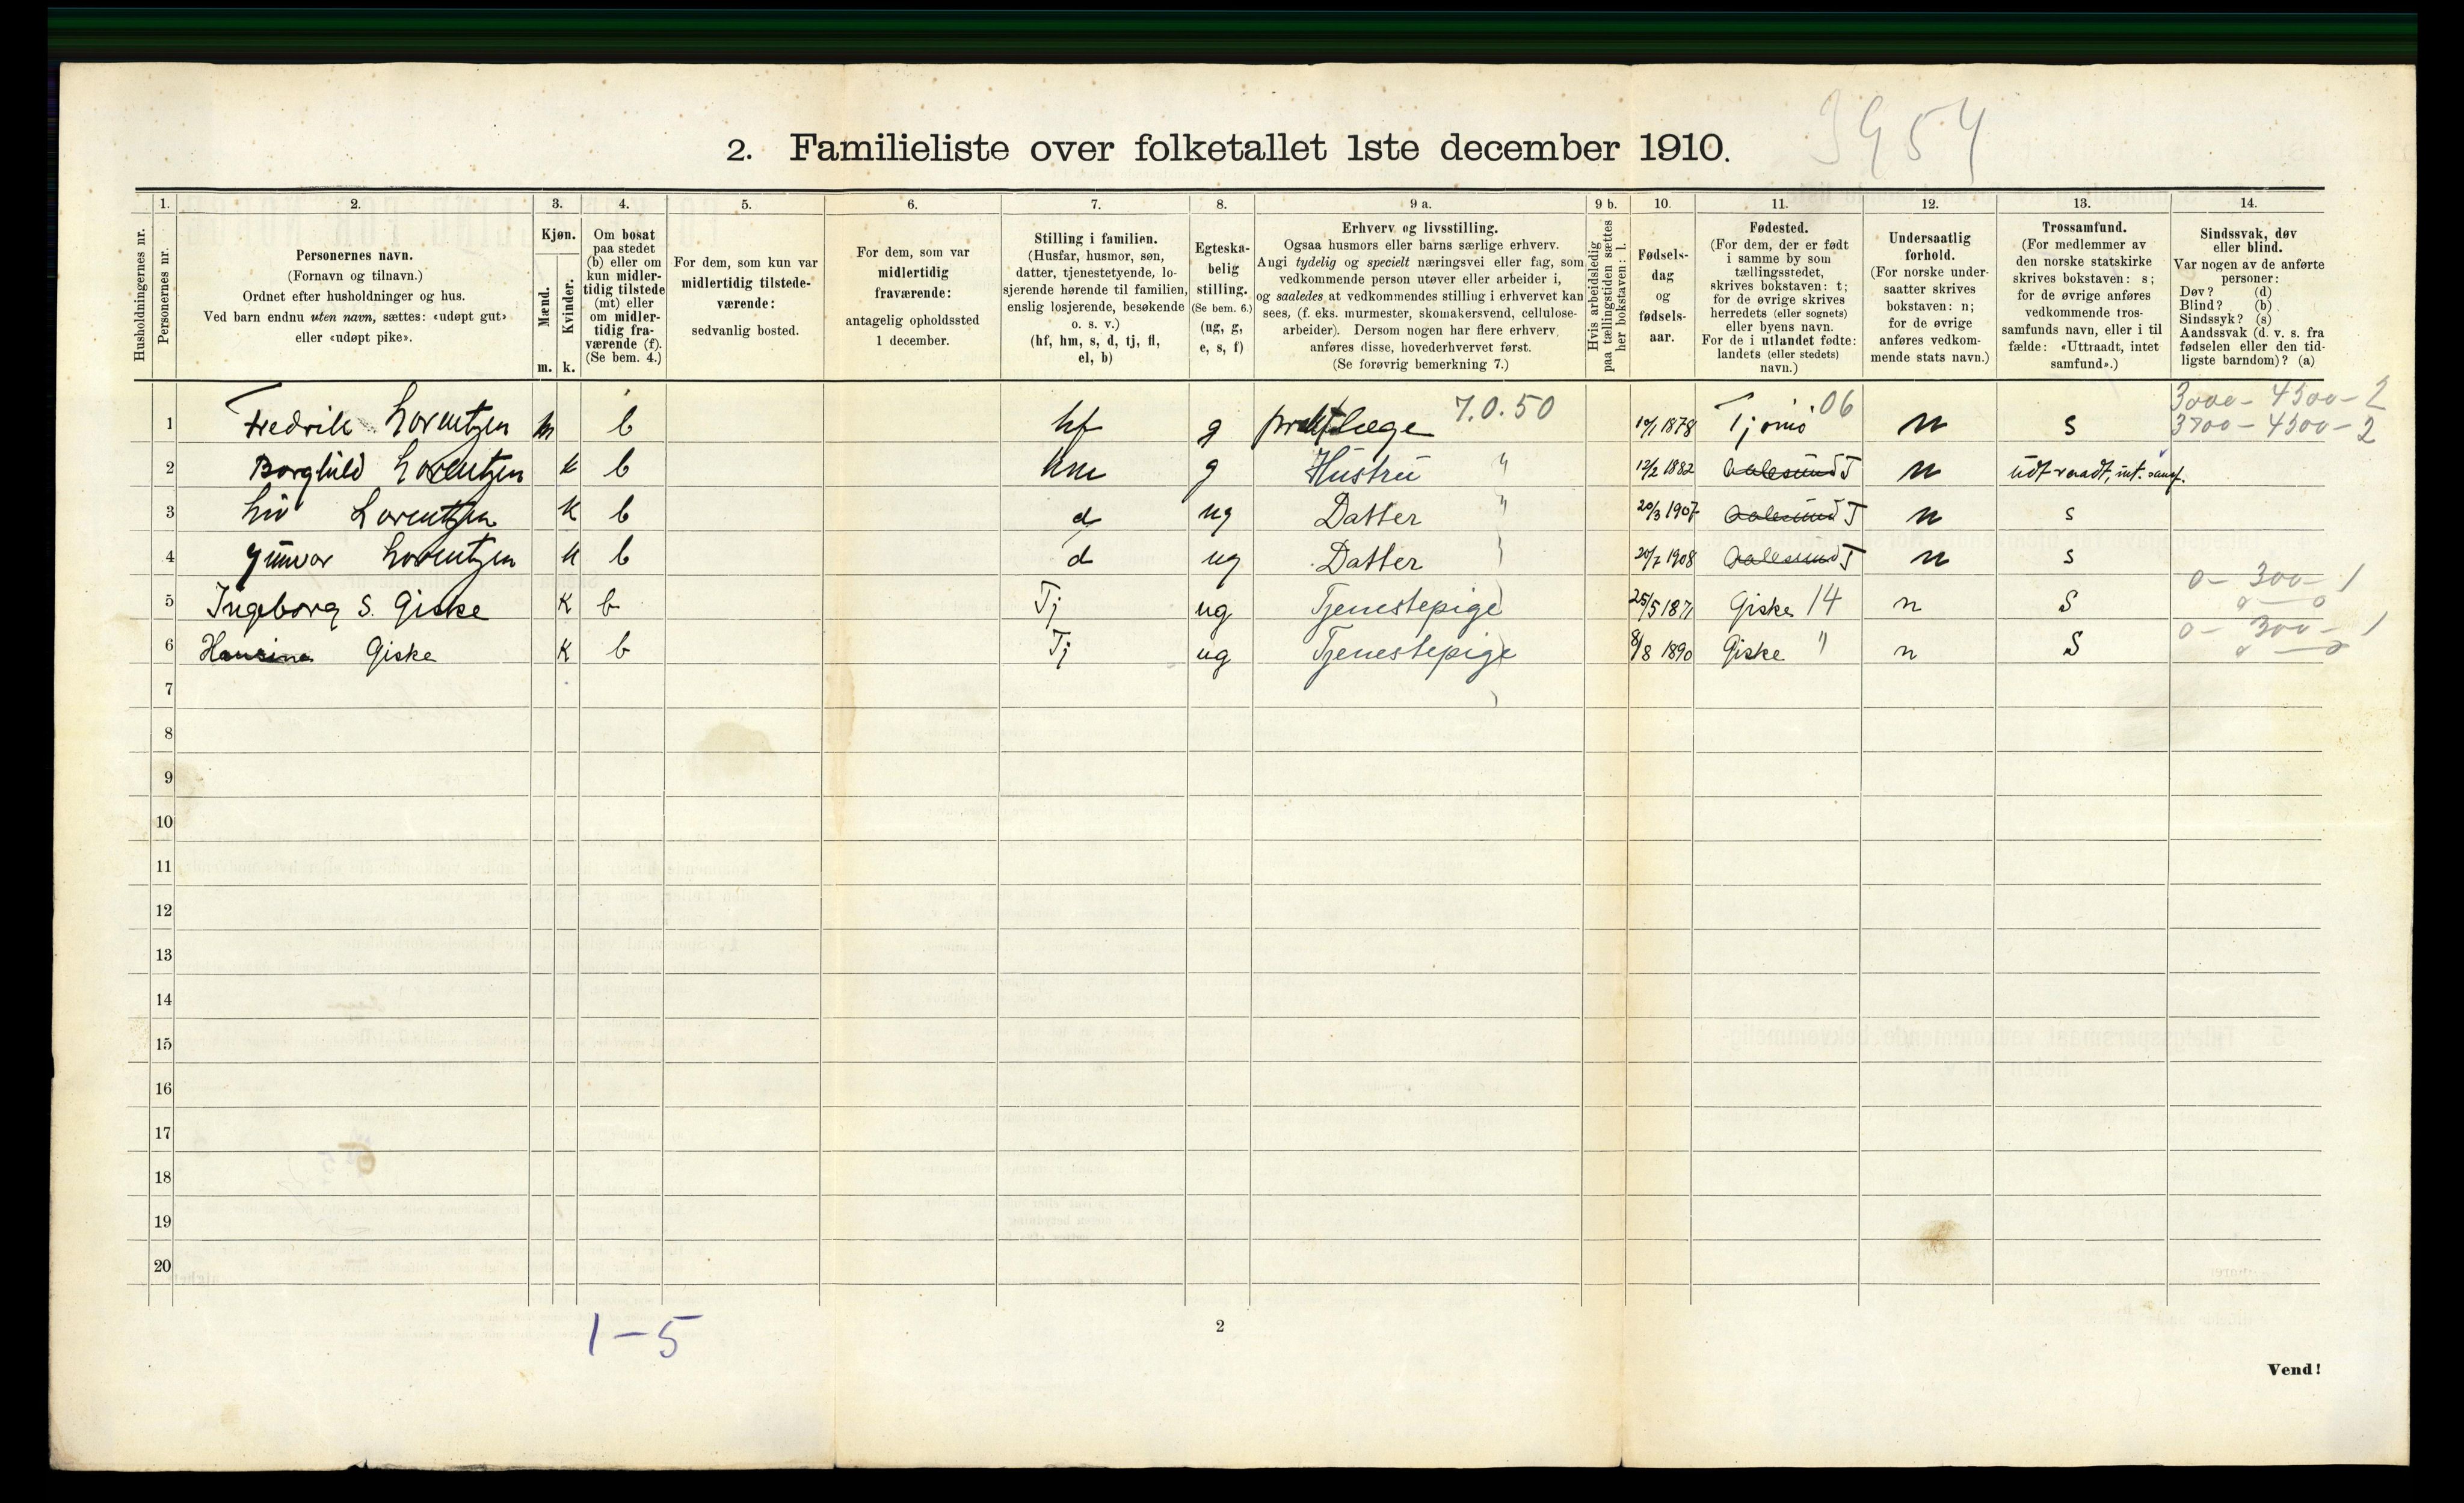 3954
2. Familieliste over folketallet 1ste december 1910.
Husholdningernes nr.
1. 2. 3. 4. 5. 6. 7. 8. 9 a. 9 b. 10. 11. 12. 13. 14.
Personernes nr.
Personernes navn.
(Fornavn og tilnavn.)
Ordnet efter husholdninger og hus.
Ved barn endnu uten navn, sættes: «udøpt gut»
eller «udøpt pike».
Kjøn.
Mænd.
Kvinder.
m. k.
Om bosat
paa stedet
(b) eller om
kun midler-
tidig tilstede
(mt) eller
om midler-
tidig fra-
værende (f).
(Se bem. 4.)
For dem, som kun var
midlertidig tilstede-
værende:
sedvanlig bosted.
For dem, som var
midlertidig
fraværende:
antagelig opholdssted
1 december.
Stilling i familien.
(Husfar, husmor, søn,
datter, tjenestetyende, lo-
sjerende hørende til familien,
enslig losjerende, besøkende
o. s. v.)
(hf, hm, s, d, tj, fl,
el, b)
Egteska-
belig
stilling.
(Se bem. 6.)
(ug, g,
e, s, f)
Erhverv og livsstilling.
Ogsaa husmors eller barns særlige erhverv.
Angi tydelig og specielt næringsvei eller fag, som
vedkommende person utøver eller arbeider i,
og saaledes at vedkommendes stilling i erhvervet kan
sees, (f. eks. murmester, skomakersvend, cellulose-
arbeider). Dersom nogen har flere erhverv,
anføres disse, hovederhvervet først.
(Se forøvrig bemerkning 7.)
Hvis arbeidsledig
paa tællingstiden sættes
her bokstaven: l.
Fødsels-
dag
og
fødsels-
aar.
Fødested.
(For dem, der er født
i samme by som
tællingsstedet,
skrives bokstaven: t;
for de øvrige skrives
herredets (eller sognets)
eller byens navn.
For de i utlandet fødte:
landets (eller stedets)
navn.)
Undersaatlig
forhold.
(For norske under-
saatter skrives
bokstaven: n;
for de øvrige
anføres vedkom-
mende stats navn.)
Trossamfund.
(For medlemmer av
den norske statskirke
skrives bokstaven: s;
for de øvrige anføres
vedkommende tros-
samfunds navn, eller i til
fælde: «Uttraadt, intet
samfund».)
Sindssvak, døv
eller blind.
Var nogen av de anførte
personer:
Døv? (d)
Blind? (b)
Sindssyk? (s)
Aandssvak (d. v. s. fra
fødselen eller den tid-
ligste barndom)? (a)
3000 - 4500 - 2
1 Fredrik Lorentzen m b hf g prakt læge 7.0.50 10/1 1878 Tjømø 06 n s 3700 - 4500 - 2
2 Borghild Lorentzen k b hm g Hustru " 12/2 1882 Aalesund T n udtraadt, int. samf.
3 Liv Lorentzen k b d ug Datter " 20/3 1907 Aalesund T n s
4 Gunvor Lorentzen k b d ug Datter 20/7 1908 Aalesund T n s
0 - 300 - 1
5 Ingeborg S. Giske K b Tj ug Tjenestepige 25/5 1871 Giske 14 n S
0 - 300 - 1
6 Hansine Giske K b Tj ug Tjenestepige 8/8 1890 Giske " n S
7
8
9
10
11
12
13
14
15
16
17
18
19
20
1-5
2
Vend!